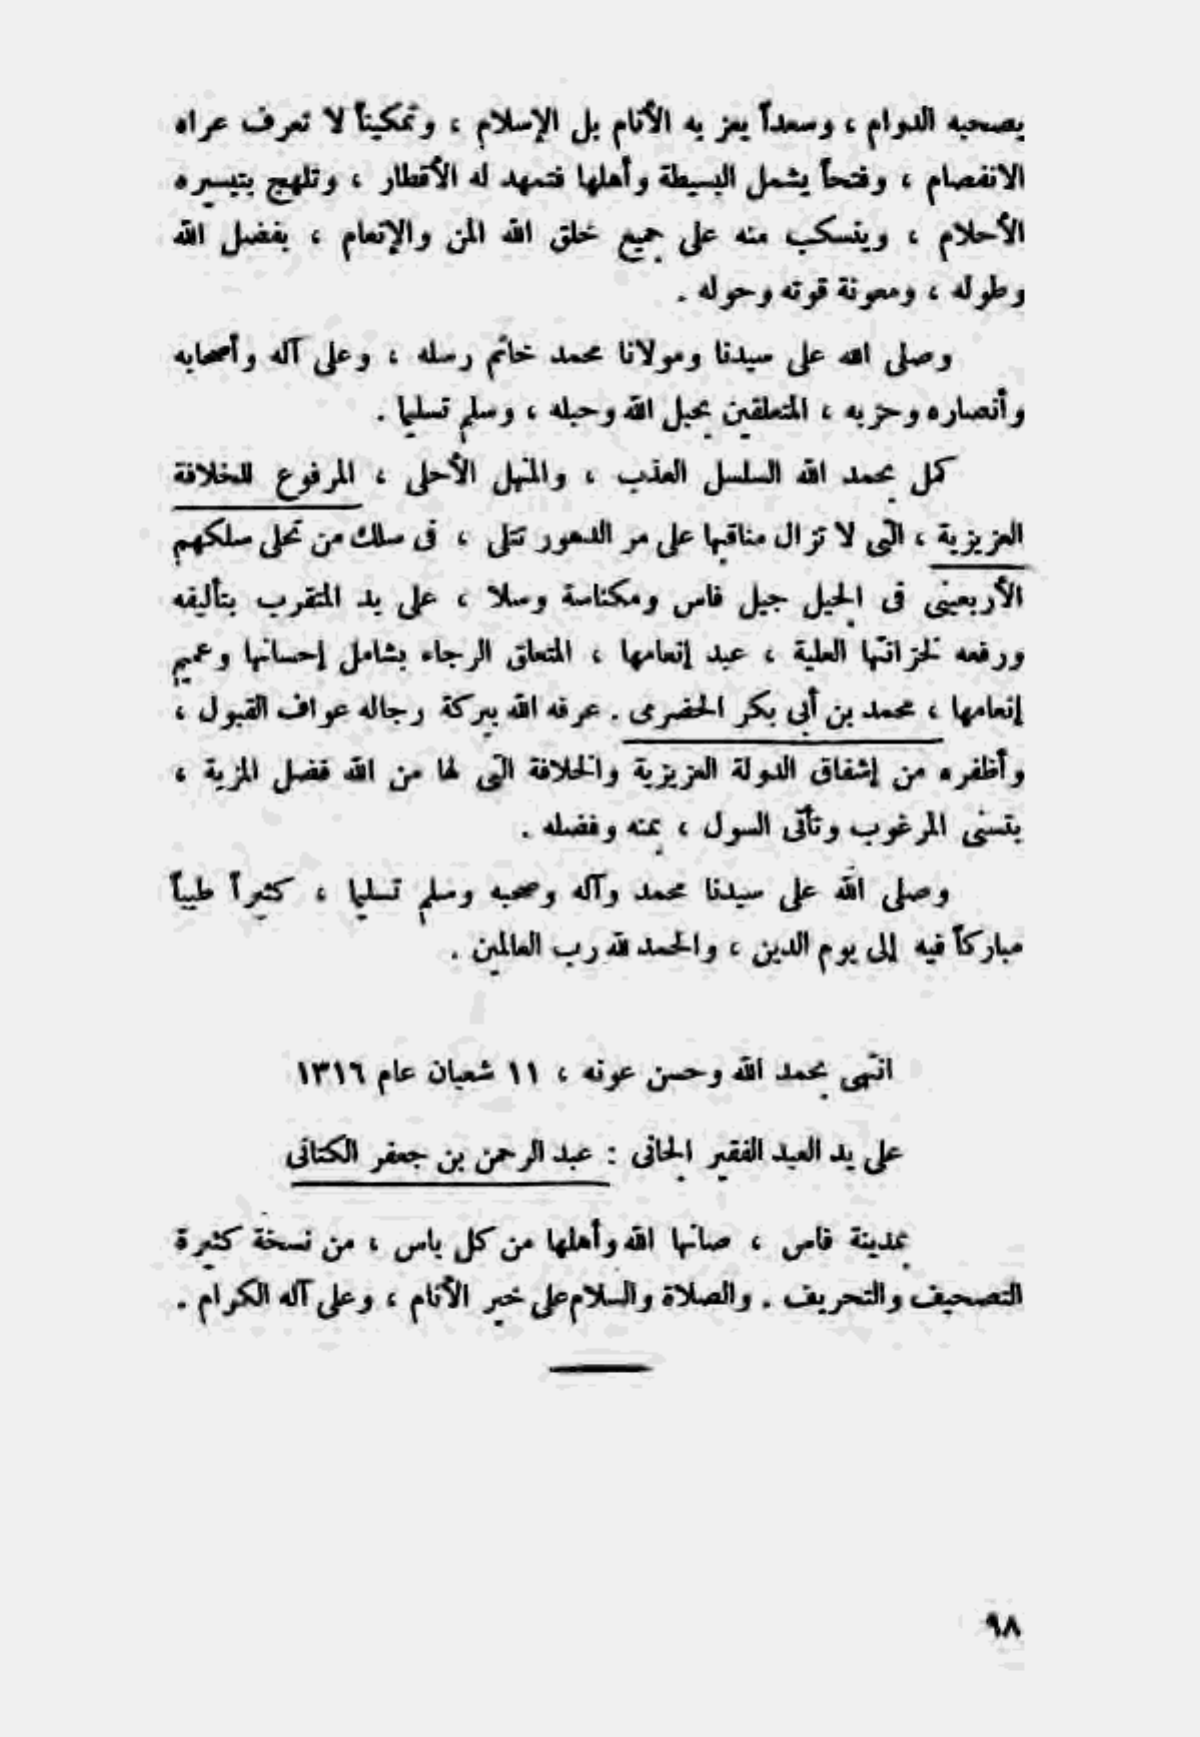 يصحبه الدوام ، وسعداً يعز به الأنام بل الإسلام ، وتمكيناً لا تعرف عراه
الانفصام ، وفتحاً يشمل البسيطة وأهلها فتمهد له الأقطار ، وتلهج بتيسيره
الأحلام ، وينسكب منه على جميع خلق الله المن والإنعام ، بفضل الله
وطوله ، ومعونة قوته وحوله .
وصلى الله على سيدنا ومولانا محمد خاتم رسله ، وعلى آله وأصحابه
وأنصاره وحزبه ، المتعلقين بحبل الله وحبله ، وسلم تسليما .
كمل بحمد الله السلسل العذب ، والمنهل الأحلى ، المرفوع للخلافة
العزيزية ، التى لا تزال مناقبها على مر الدهور تتلى ، فى سلك من تحلى سلكهم
الأربعينى فى الجيل جيل فاس ومكناسة وسلا ، على يد المتقرب بتأليفه
ورفعه لخزانتها العلية ، عبد إنعامها ، المتعلق الرجاء بشامل إحسانها وعميم
إنعامها ، محمد بن أبى بكر الحضرمى . عرفه الله ببركة رجاله عواف القبول ،
وأظفره من إشفاق الدولة العزيزية والخلافة التى لها من الله فضل المزية ،
بتسنى المرغوب وتأتى السول ، بمنه وفضله .
وصلى الله على سيدنا محمد وآله وصحبه وسلم تسليما ، كثيراً طيباً
مباركاً فيه إلى يوم الدين ، والحمد لله رب العالمين .
انتهى بحمد الله وحسن عونه ، ١١ شعبان عام ١٣١٦
على يد العبد الفقير الجانى : عبد الرحمن بن جعفر الكتانى
بمدينة فاس ، صانها الله وأهلها من كل باس ، من نسخة كثيرة
التصحيف والتحريف . والصلاة والسلام على خير الأنام ، وعلى آله الكرام .
٩٨